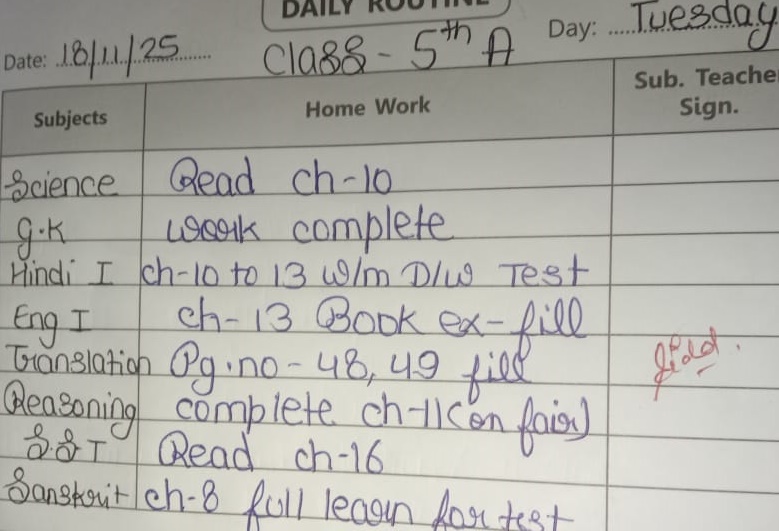 DAILY ROUTINE
Date: 18/11/25 Class - 5th A Day: Tuesday
Subjects Home Work Sub. Teache Sign.
Science Read ch-10
g.k work complete
Hindi I ch-10 to 13 W/m D/W Test
Eng I ch-13 Book ex-fill
Translation Pg.no-48, 49 fill
Reasoning complete ch-11(on fair)
S.S I Read ch-16
Sanskrit ch-8 full learn for test